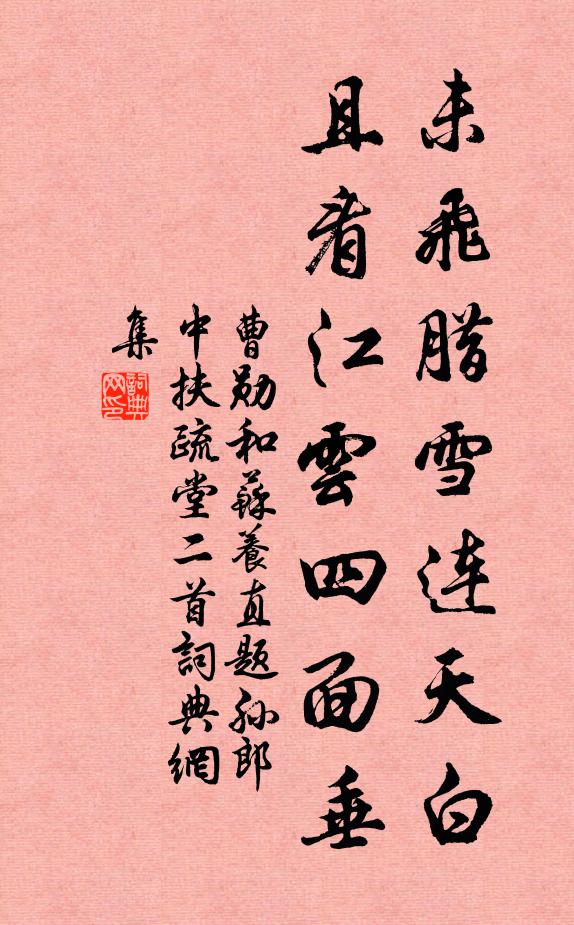 未飛腊雪连天白
且看江雲四面垂
曹勋和蘇養直題孙郎
中扶疏堂二首詞典網
集
詞典
网印